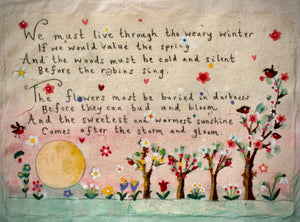 We must live through the weary winter
If we would value the spring
And the woods must be cold and silent
Before the robins sing.
The flowers must be buried in darkness
Before they can bud and bloom
And the sweetest and warmest sunshine
Comes after the storm and gloom.